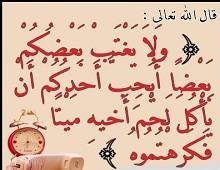 قال الله تعالى :
﴿ وَلَا يَغْتَب بَّعْضُكُم
بَعْضًا أَيُحِبُّ أَحَدُكُمْ أَن
يَأْكُلَ لَحْمَ أَخِيهِ مَيْتًا
فَكَرِهْتُمُوهُ ﴾